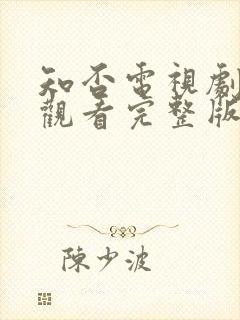 知否電視劇
觀看完整版
陳少波